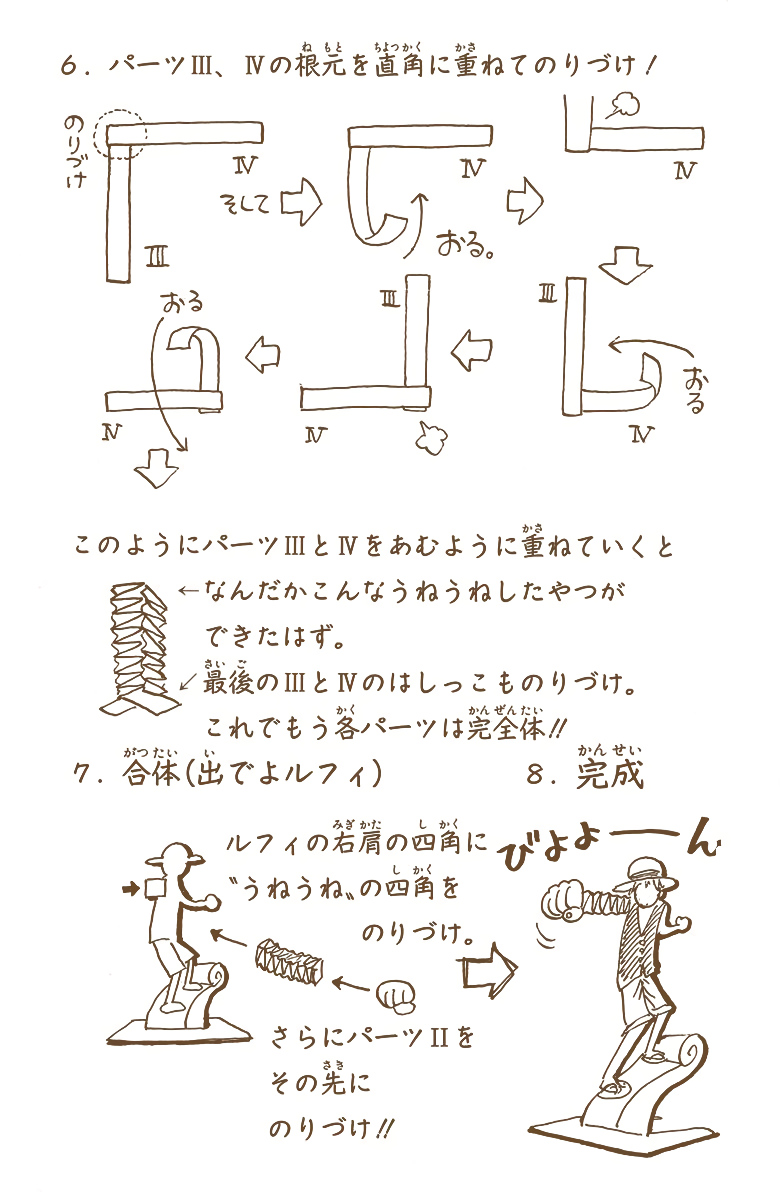 6. パーツⅢ、Ⅳの根元を直角に重ねてのりづけ!
のりづけ
Ⅳ
Ⅲ
そして
Ⅳ
おる。
Ⅳ
Ⅲ
おる
Ⅳ
Ⅲ
Ⅳ
おる
Ⅳ
このようにパーツⅢとⅣをあむように重ねていくと
←なんだかこんなうねうねしたやつが
できたはず。
↙最後のⅢとⅣのはしっこものりづけ。
これでもう各パーツは完全体!!
7. 合体(出でよルフィ)
ルフィの右肩の四角に
〝うねうね〟の四角を
のりづけ。
さらにパーツⅡを
その先に
のりづけ!!
8. 完成
びよょーん